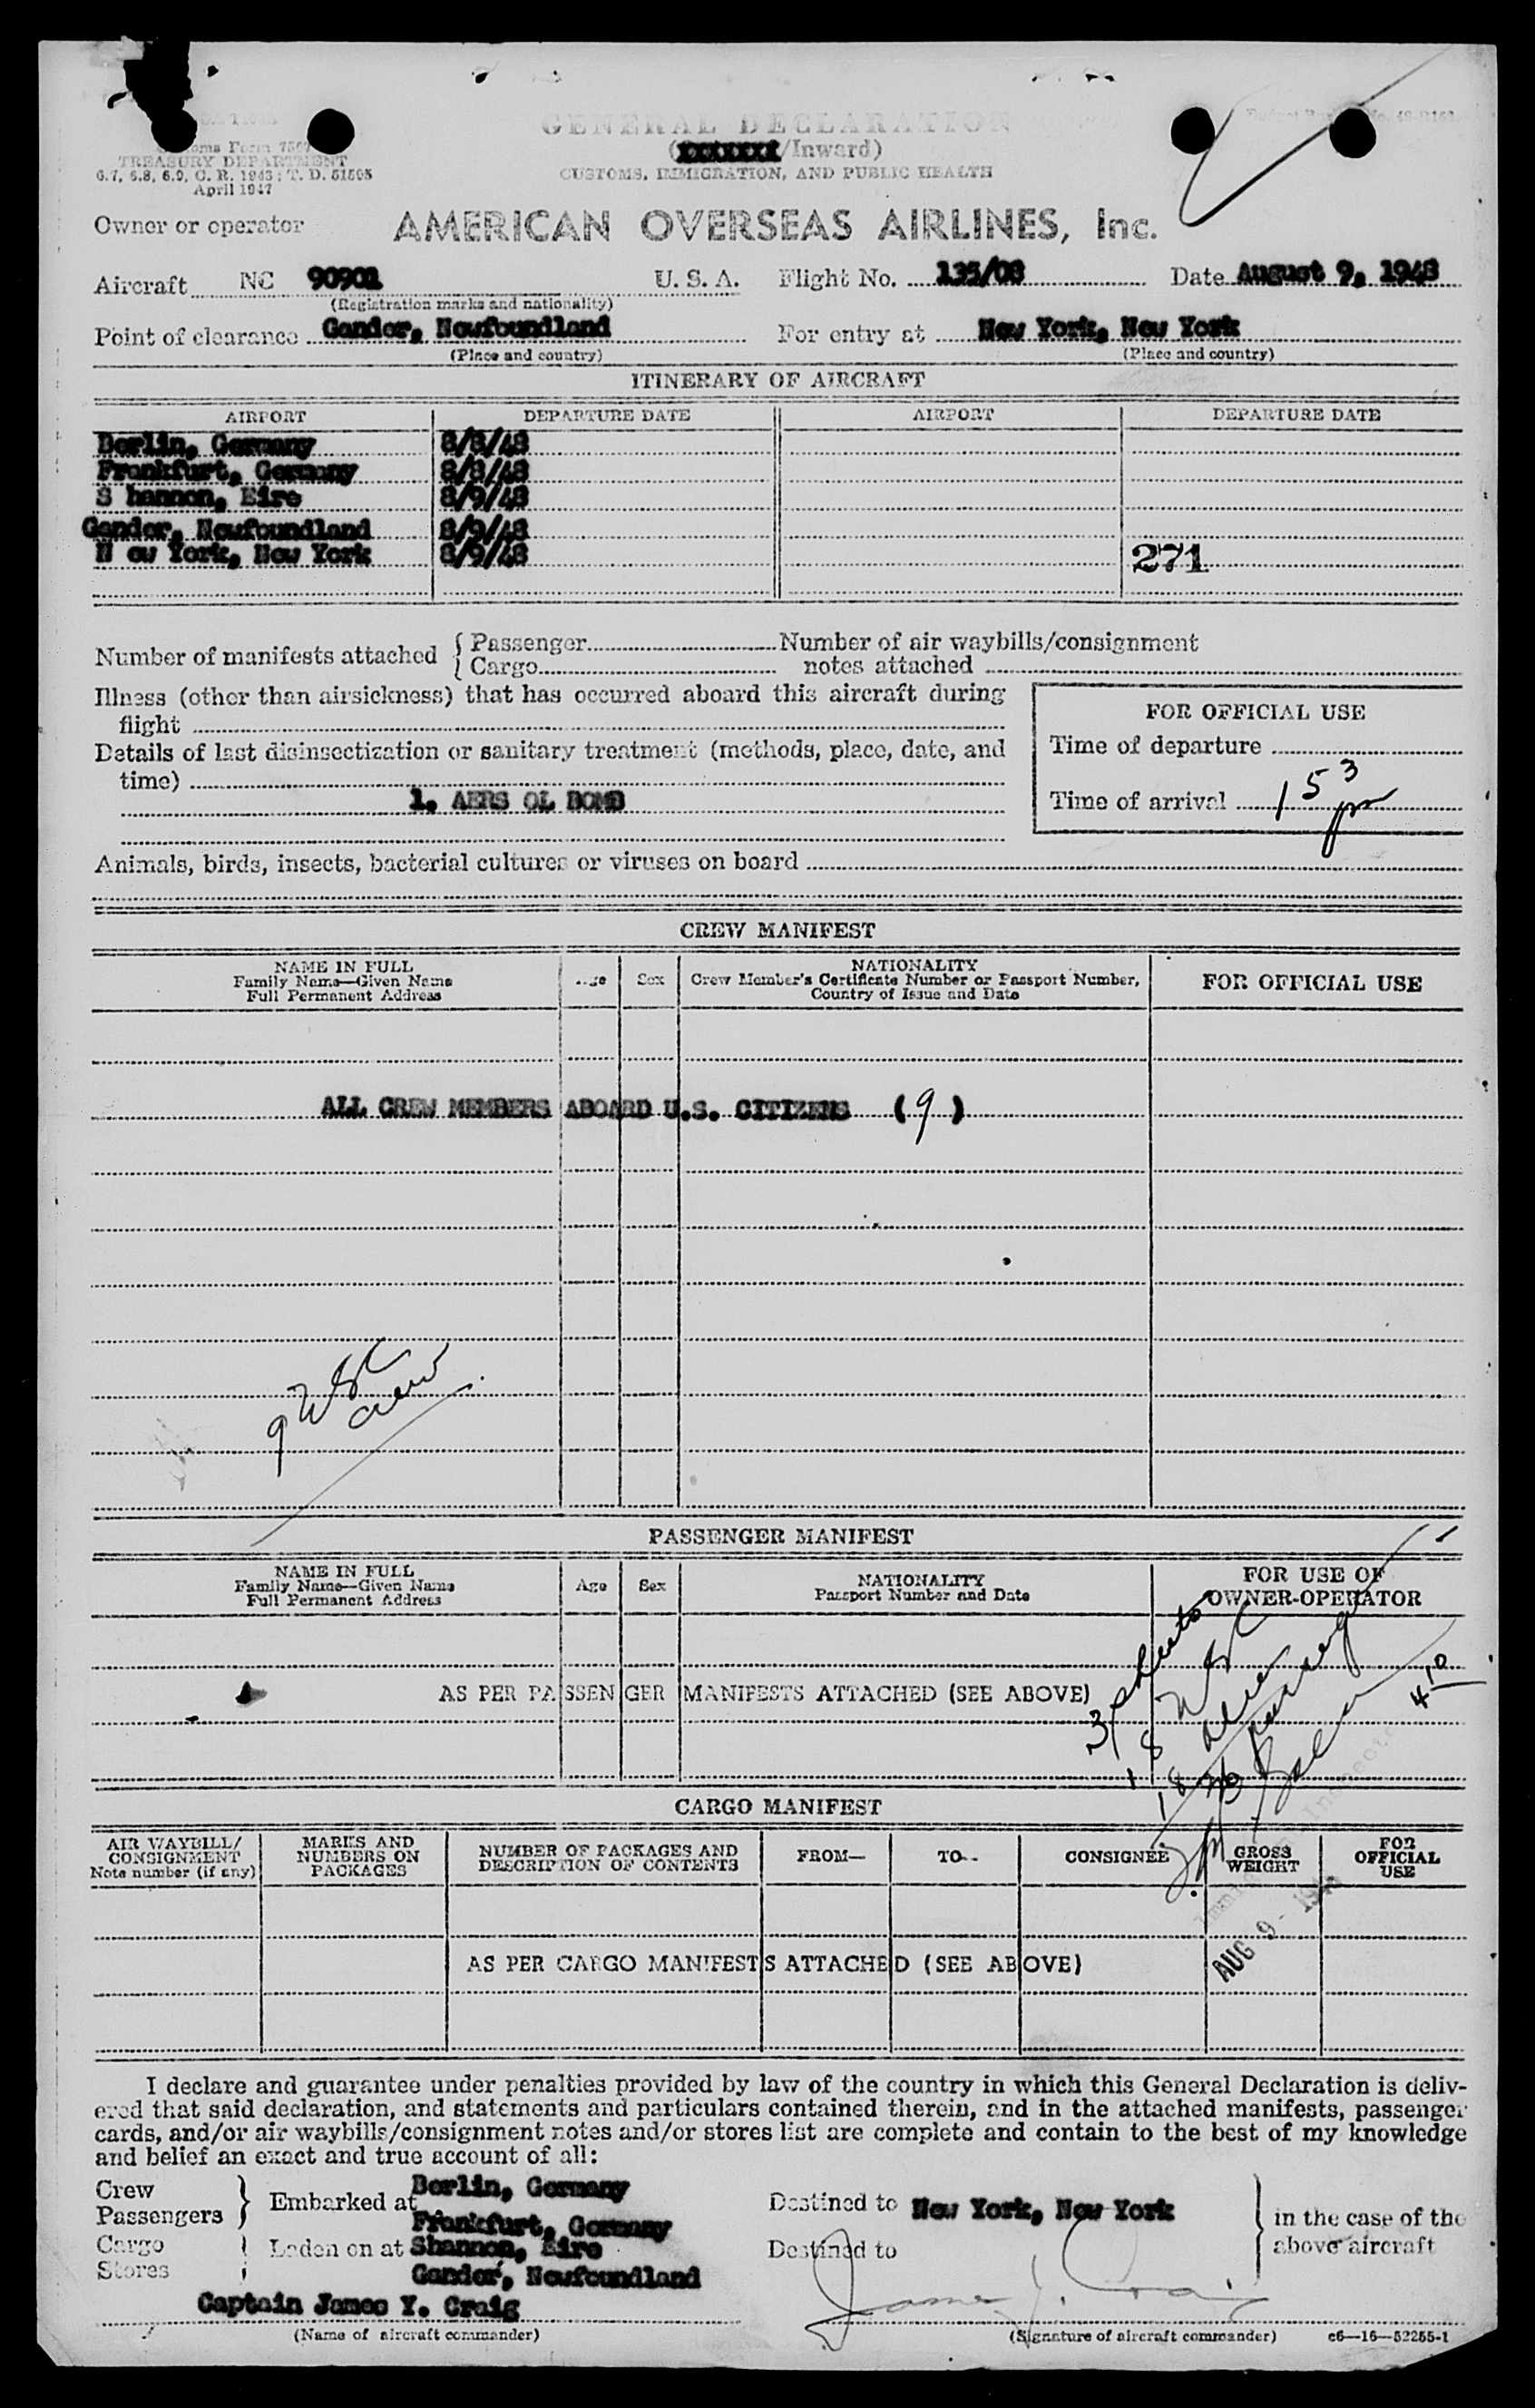 Customs Form 7507
TREASURY DEPARTMENT
6.7, 6.8, 6.9, C. R. 1943; T. D. 51595
April 1947
GENERAL DECLARATION
(xxxxxxx/Inward)
CUSTOMS, IMMIGRATION, AND PUBLIC HEALTH
Owner or operator AMERICAN OVERSEAS AIRLINES, Inc.
Aircraft NC 90901 U. S. A. Flight No. 135/08 Date August 9, 1948
(Registration marks and nationality)
Point of clearance Gander, Newfoundland For entry at New York, New York
(Place and country) (Place and country)
ITINERARY OF AIRCRAFT
AIRPORT DEPARTURE DATE AIRPORT DEPARTURE DATE
Berlin, Germany 8/8/48
Frankfurt, Germany 8/8/48
S hannon, Eire 8/9/48
Gander, Newfoundland 8/9/48
N ew York, New York 8/9/48 271
Number of manifests attached { Passenger Number of air waybills/consignment
{ Cargo notes attached
Illness (other than airsickness) that has occurred aboard this aircraft during
flight
FOR OFFICIAL USE
Details of last disinsectization or sanitary treatment (methods, place, date, and
time)
Time of departure
1. AERS OL BOMB
Time of arrival 1 53 pm
Animals, birds, insects, bacterial cultures or viruses on board
CREW MANIFEST
NAME IN FULL
Family Name—Given Name
Full Permanent Address
Age Sex
NATIONALITY
Crew Member's Certificate Number or Passport Number,
Country of Issue and Date
FOR OFFICIAL USE
ALL CREW MEMBERS ABOARD U.S. CITIZENS (9)
9 USC
crew
PASSENGER MANIFEST
NAME IN FULL
Family Name—Given Name
Full Permanent Address
Age Sex
NATIONALITY
Passport Number and Date
FOR USE OF
OWNER-OPERATOR
3 sheets
8 USC
18
410
AS PER PASSENGER MANIFESTS ATTACHED (SEE ABOVE)
CARGO MANIFEST
AIR WAYBILL/
CONSIGNMENT
Note number (if any)
MARKS AND
NUMBERS ON
PACKAGES
NUMBER OF PACKAGES AND
DESCRIPTION OF CONTENTS
FROM— TO— CONSIGNEE
GROSS
WEIGHT
FOR
OFFICIAL
USE
AUG 9 - 1948
AS PER CARGO MANIFESTS ATTACHED (SEE ABOVE)
I declare and guarantee under penalties provided by law of the country in which this General Declaration is deliv-
ered that said declaration, and statements and particulars contained therein, and in the attached manifests, passenger
cards, and/or air waybills/consignment notes and/or stores list are complete and contain to the best of my knowledge
and belief an exact and true account of all:
Crew
Passengers } Embarked at Berlin, Germany
Frankfurt, Germany
Destined to New York, New York
in the case of the
above aircraft
Cargo
Stores
Laden on at Shannon, Eire
Gander, Newfoundland
Destined to
Captain James Y. Craig James Y. Craig
(Name of aircraft commander) (Signature of aircraft commander) c6—16—52255-1